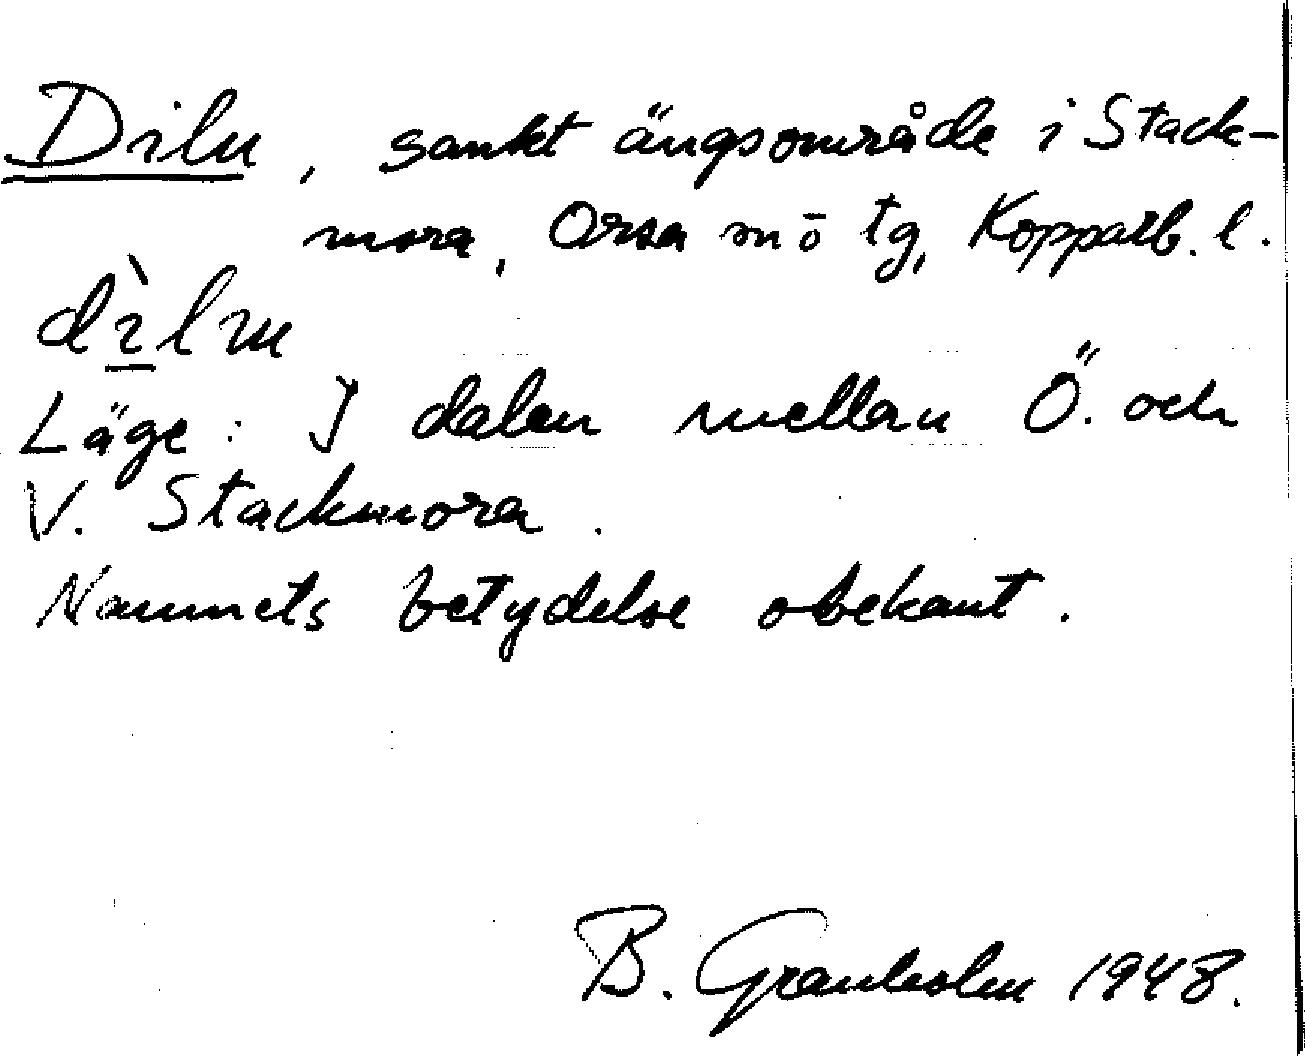 Diln, sankt ängsområde i Stack-
mora, Orsa sn ö tg, Kopparb. l.
dìln
Läge: I dalen mellan Ö. och
V. Stackmora.
Namnets betydelse obekant.
B. Granholm 1948.